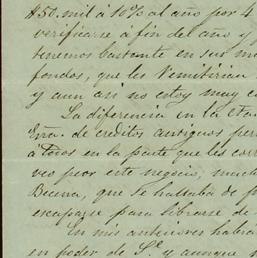 $50. mil á 10% al año por 4
verificarse á fin del año y
tenemos bastante en sus m
fondos, que les remitirian
y aun asi no estoy muy c
La diferencia en la
de creditos antiguos per
á todos en la parte que les corr
veo peor este negocio, much
que se hallaba de p
escaparse para librarse de
En mis anteriores habrá
en poder de S.ᵉ y aunque